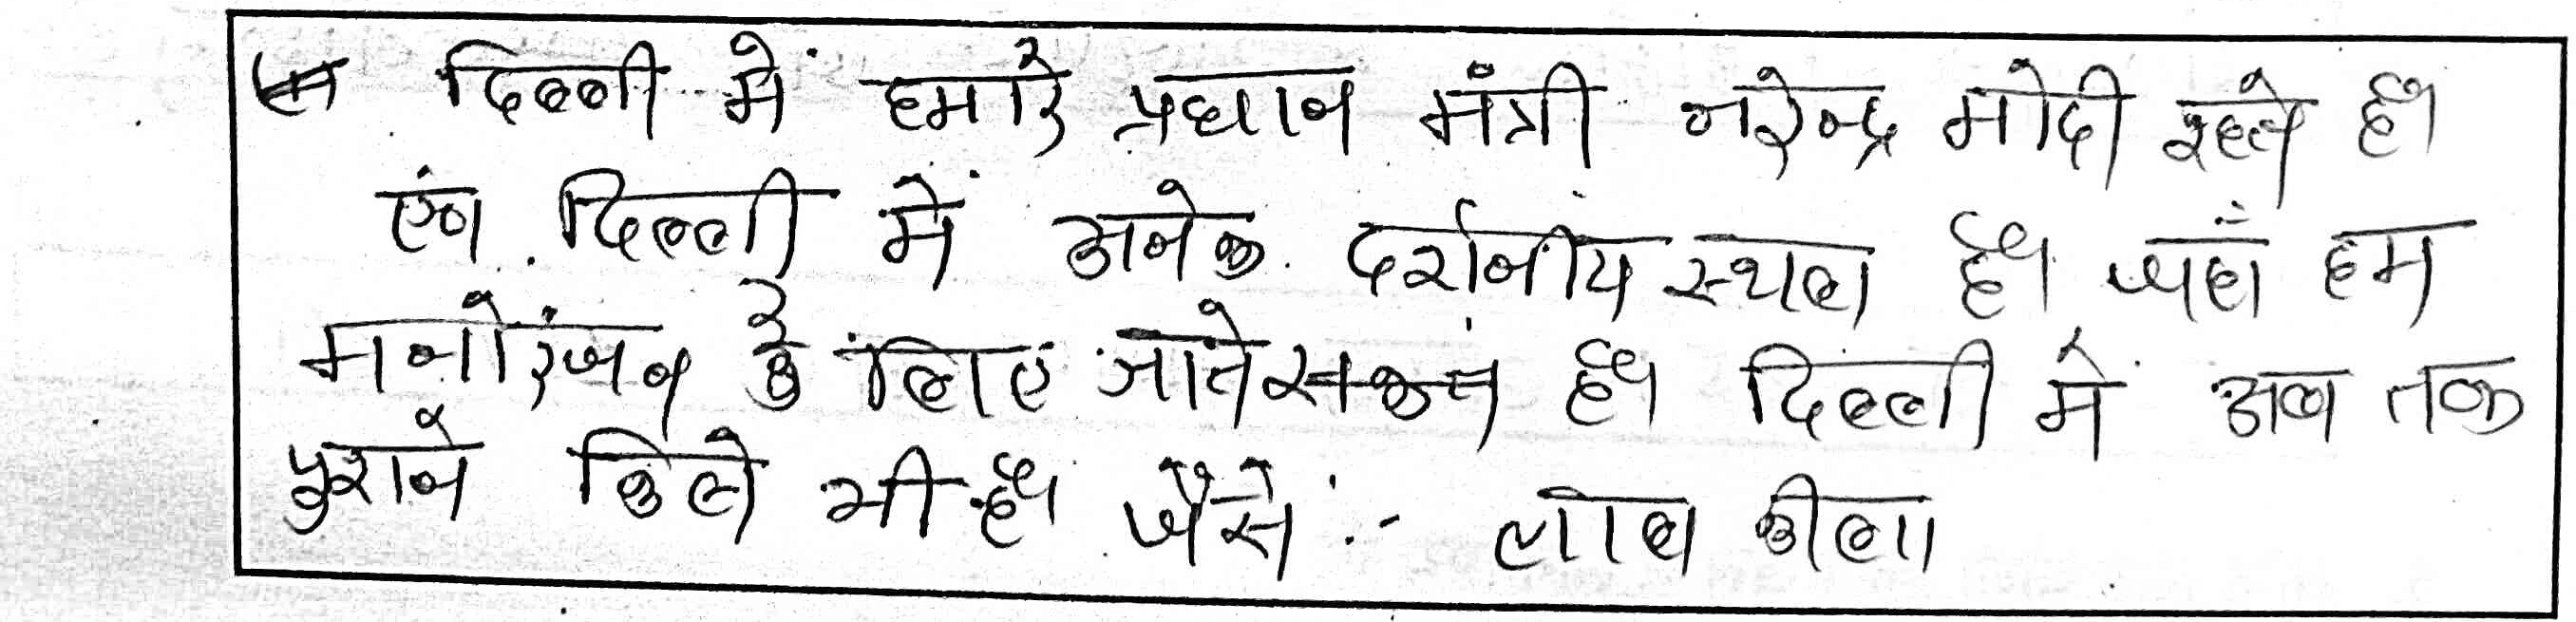 दिल्ली में हमारे प्रधान मंत्री नरेन्द्र मोदी रहते है।
एंव दिल्ली में अनेक दर्शनीय स्थल है। जहाँ हम
मनोरंजन के लिए जाते है। दिल्ली में अब तक
पुराने किले भी है। जैसे :- लाल कीला